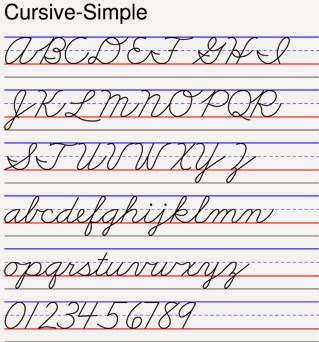 Cursive-Simple
ABCDEF GHI
JKLMNOPQR
STUVWXYZ
abcdefghijklmn
opqrstuvwxyz
0123456789